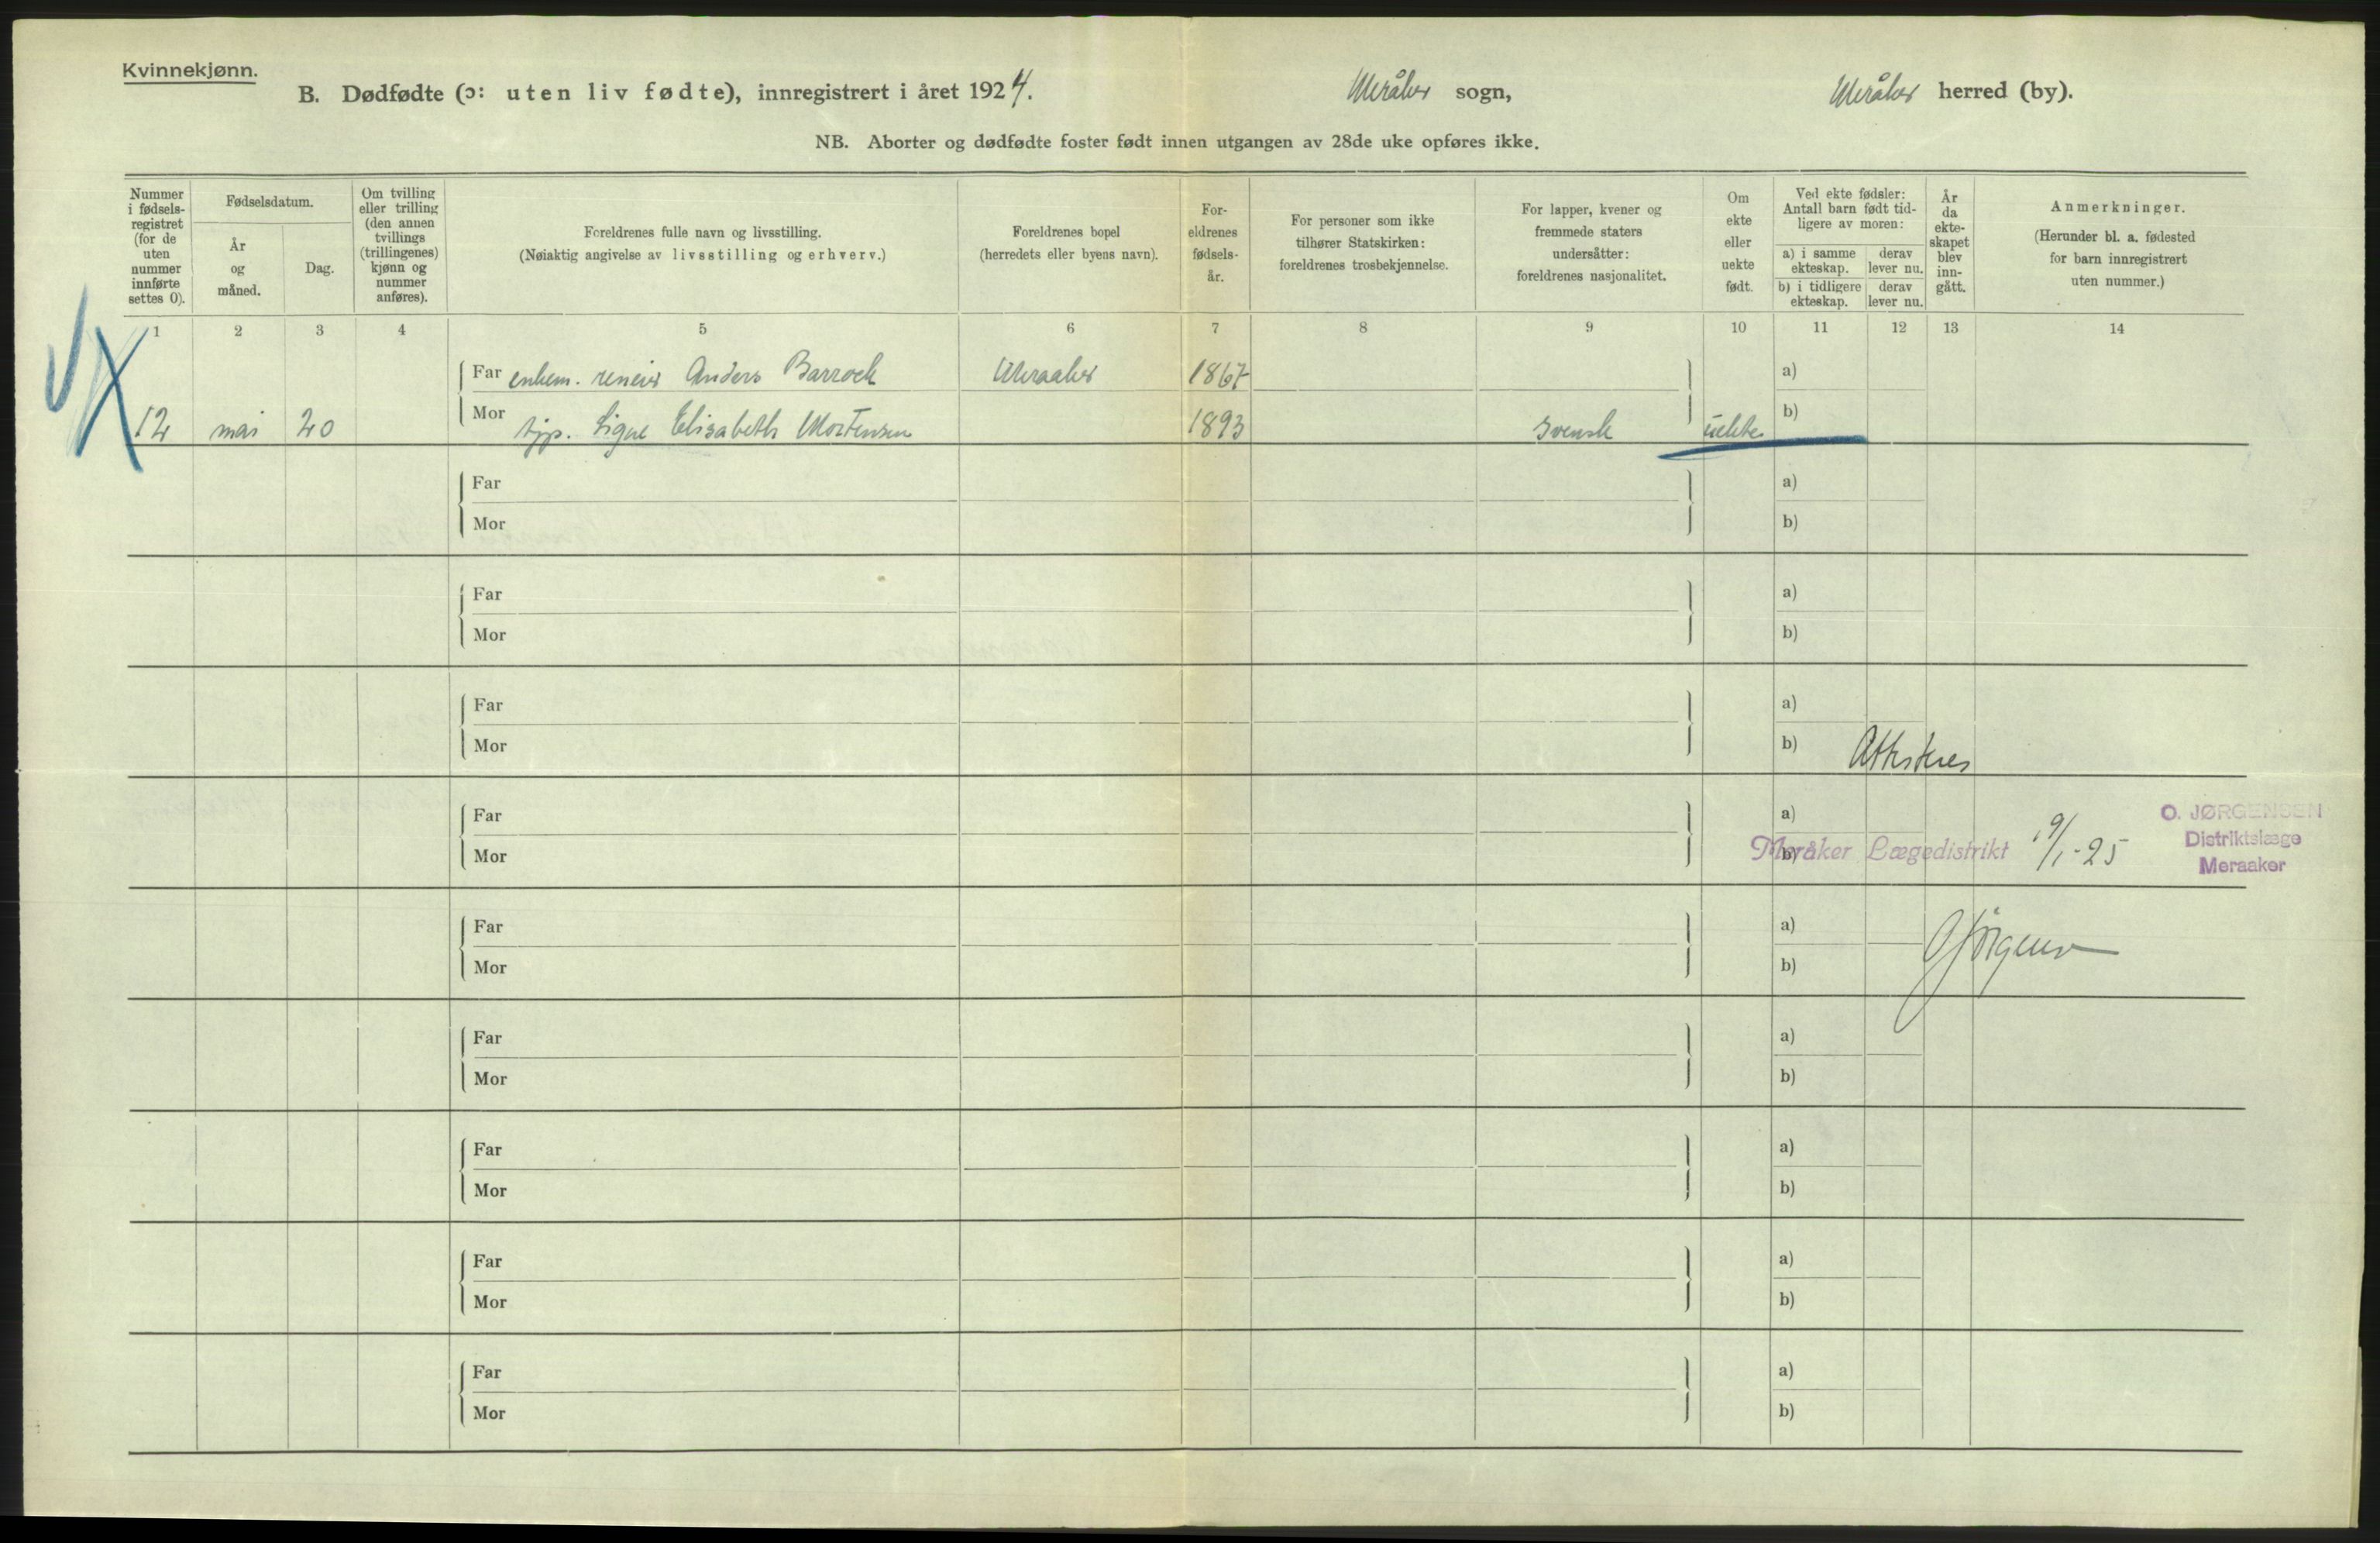 Kvinnekjønn.
B. Dødfødte (ɔ: uten liv fødte), innregistrert i året 1924. Meråker sogn, Meråker herred (by).
NB. Aborter og dødfødte foster født innen utgangen av 28de uke opføres ikke.
Nummer i fødsels-registret (for de uten nummer innførte settes 0).
Fødselsdatum.
År og måned.
Dag.
Om tvilling eller trilling (den annen tvillings (trillingenes) kjønn og nummer anføres).
Foreldrenes fulle navn og livsstilling.
(Nøiaktig angivelse av livsstilling og erhverv.)
Foreldrenes bopel
(herredets eller byens navn).
For-eldrenes fødsels-år.
For personer som ikke tilhører Statskirken: foreldrenes trosbekjennelse.
For lapper, kvener og fremmede staters undersåtter: foreldrenes nasjonalitet.
Om ekte eller uekte født.
Ved ekte fødsler: Antall barn født tid-ligere av moren:
a) i samme ekteskap.
derav lever nu.
b) i tidligere ekteskap.
derav lever nu.
År da ekte-skapet blev inn-gått.
Anmerkninger.
(Herunder bl. a. fødested for barn innregistrert uten nummer.)
1 2 3 4 5 6 7 8 9 10 11 12 13 14
Far enkem. reneier Anders Barrock Meraaker 1867 a)
12 mai 20 Mor tjp. Signe Elisabeth Mortensen 1893 svensk uekte b)
Far a)
Mor b)
Far a)
Mor b)
Far a)
Mor b) Attesteres
Far a) O. JØRGENSEN
Mor b) Meråker Lægedistrikt 19/1-25 Distriktslæge
Meraaker
Far a)
Mor b) OJørgensen
Far a)
Mor b)
Far a)
Mor b)
Far a)
Mor b)
Far a)
Mor b)